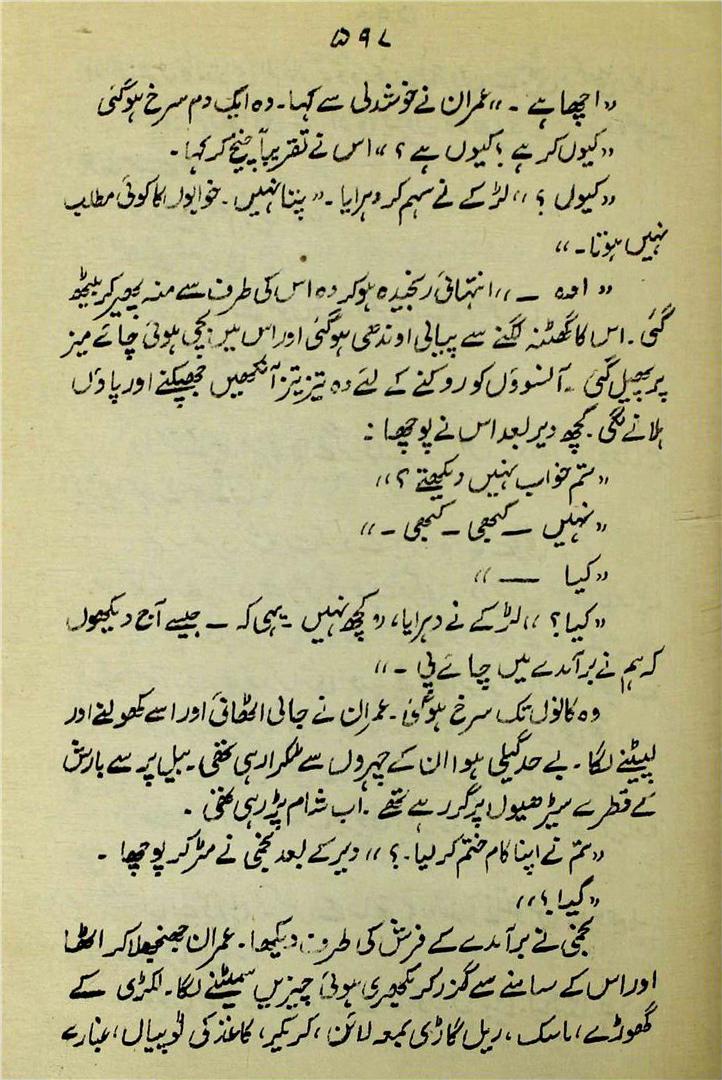 ۵۹۷
"اچھا ہے ۔" عمران نے خوشدلی سے کہا۔ وہ ایک دم سرخ ہو گئی
"کیوں کر ہے ؟ کیوں ہے ؟" اس نے تقریباً چیخ کر کہا۔
"کیوں ؟" لڑکے نے سہم کر دہرایا ۔ "پتا نہیں ۔ خوابوں کا کوئی مطلب
نہیں ہوتا۔"
"اوہ ـــ" انتہائی رنجیدہ ہو کر وہ اس کی طرف سے منہ پھیر کر بیٹھ
گئی ۔ اس کا گھٹنہ لگنے سے پیالی اوندھی ہو گئی اور اس میں بچی ہوئی چائے میز
پر پھیل گئی ۔ آنسوؤں کو روکنے کے لئے وہ تیز تیز آنکھیں جھپکنے اور پاؤں
ہلانے لگی ۔ کچھ دیر بعد اس نے پوچھا :
"تم خواب نہیں دیکھتے ؟"
"نہیں ـــ کبھی ـ کبھی ـ"
"کیا ـــ"
"کیا ؟" لڑکے نے دہرایا، "کچھ نہیں ۔ یہی کہ ـــ جیسے آج دیکھوں
کہ ہم نے برآمدے میں چائے پی ۔"
وہ کانوں تک سرخ ہو گئی ۔ عمران نے جالی اٹھائی اور اسے کھولنے اور
لپیٹنے لگا ۔ بے حد گیلی ہوا ان کے چہروں سے ٹکرا رہی تھی ۔ بیل پر سے بارش
کے قطرے سیڑھیوں پر گر رہے تھے ۔ اب شام پڑ رہی تھی ۔
"تم نے اپنا کام ختم کر لیا ۔ ؟" دیر کے بعد نجمی نے مڑ کر پوچھا ۔
"کیا ؟"
نجمی نے برآمدے کے فرش کی طرف دیکھا ۔ عمران جھنجھلا کر اٹھا
اور اس کے سامنے سے گزر کر بکھری ہوئی چیزیں سمیٹنے لگا ۔ لکڑی کے
گھوڑے، ماسک، ریل گاڑی بمعہ لائن، کریکر، کاغذ کی ٹوپیاں، غبارے